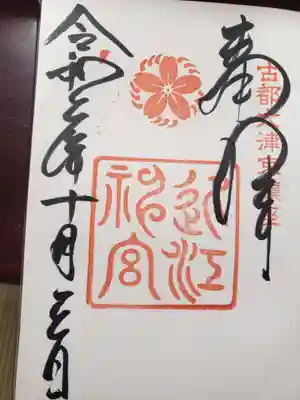 古都大津市鎮座
奉拝
近江
神宮
令和六年十月三日